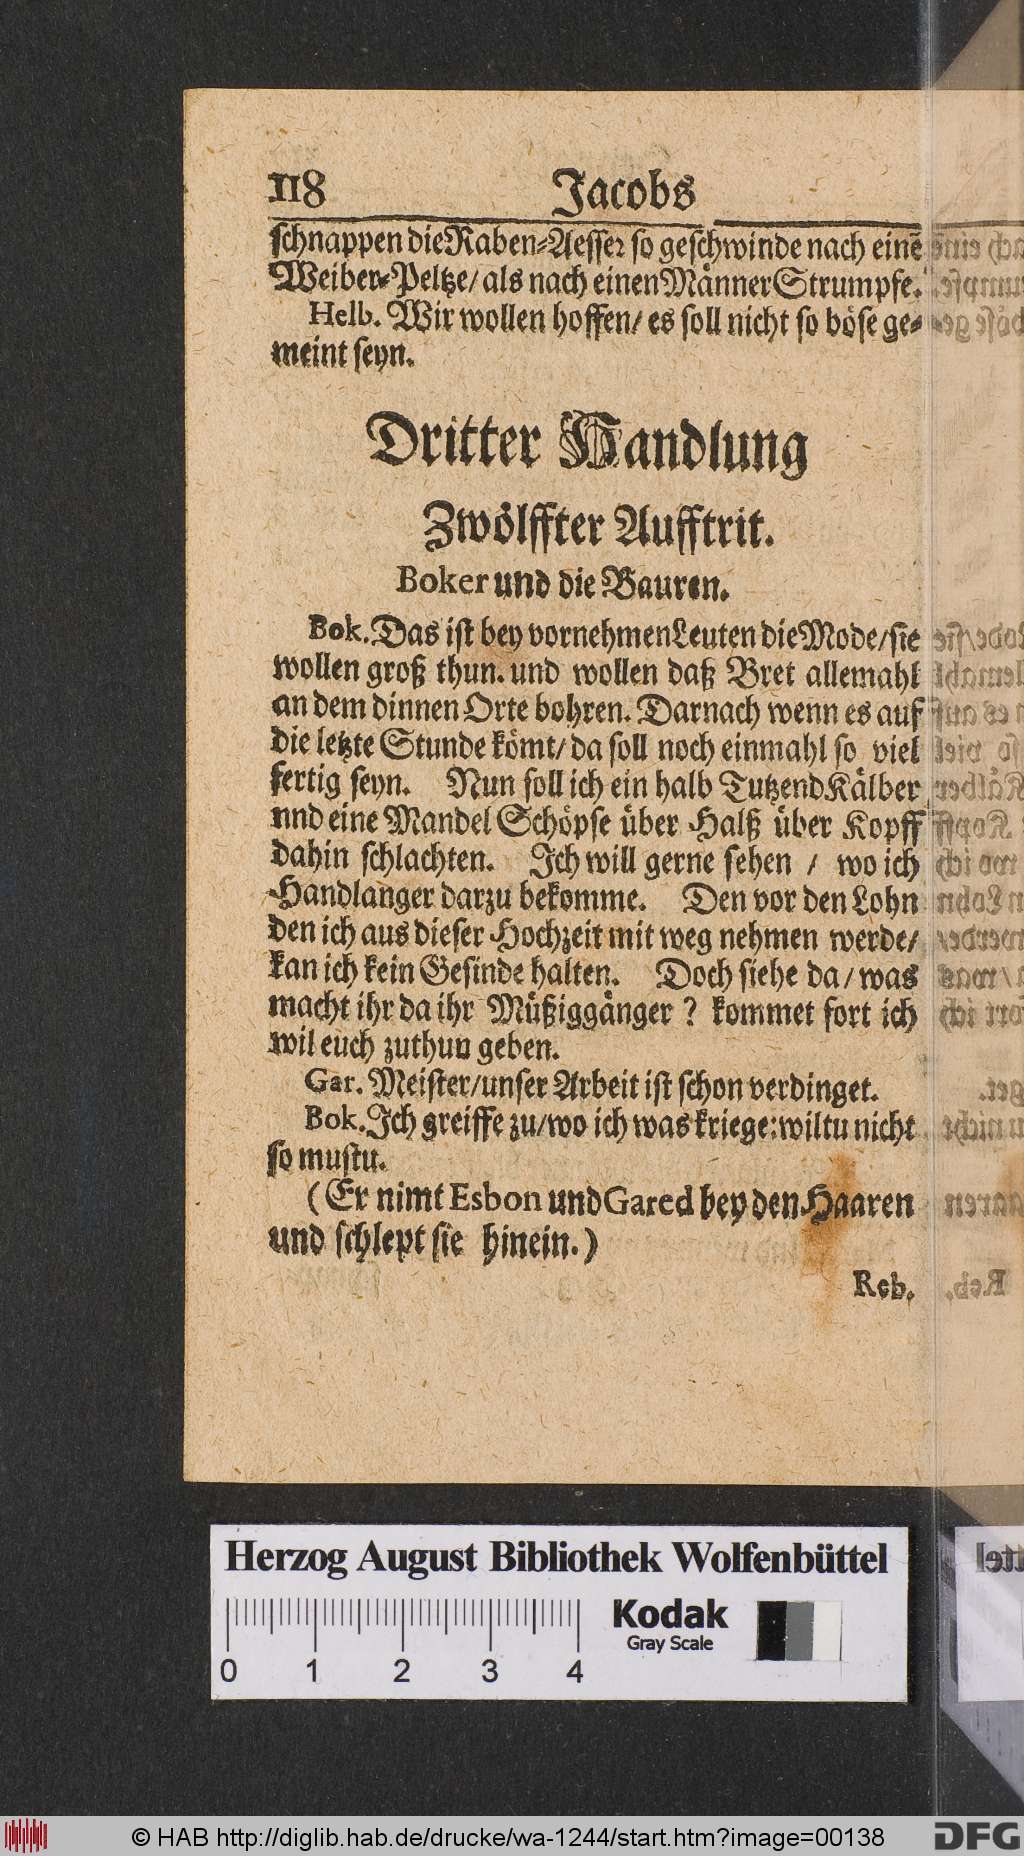 118 Jacobs
schnappen die Raben-Aesser so geschwinde nach einẽ
Weiber-Peltze/ als nach einen Männer Strumpfe.
Helb. Wir wollen hoffen/ es soll nicht so böse ge-
meint seyn.
Dritter Handlung
Zwölffter Aufftrit.
Boker und die Bauren.
Bok. Das ist bey vornehmen Leuten die Mode/ sie
wollen groß thun. und wollen daß Bret allemahl
an dem dinnen Orte bohren. Darnach wenn es auf
die letzte Stunde kömt/ da soll noch einmahl so viel
fertig seyn. Nun soll ich ein halb Tutzend Kälber
nnd eine Mandel Schöpse über Halß über Kopff
dahin schlachten. Ich will gerne sehen / wo ich
Handlanger darzu bekomme. Den vor den Lohn
den ich aus dieser Hochzeit mit weg nehmen werde/
kan ich kein Gesinde halten. Doch siehe da/ was
macht ihr da ihr Müßiggänger ? kommet fort ich
wil euch zuthun geben.
Gar. Meister/ unser Arbeit ist schon verdinget.
Bok. Ich greiffe zu/ wo ich was kriege: wiltu nicht
so mustu.
(Er nimt Esbon und Gared bey den Haaren
und schlept sie hinein.)
Reb.
Herzog August Bibliothek Wolfenbüttel
Kodak
Gray Scale
0 1 2 3 4
© HAB http://diglib.hab.de/drucke/wa-1244/start.htm?image=00138
DFG